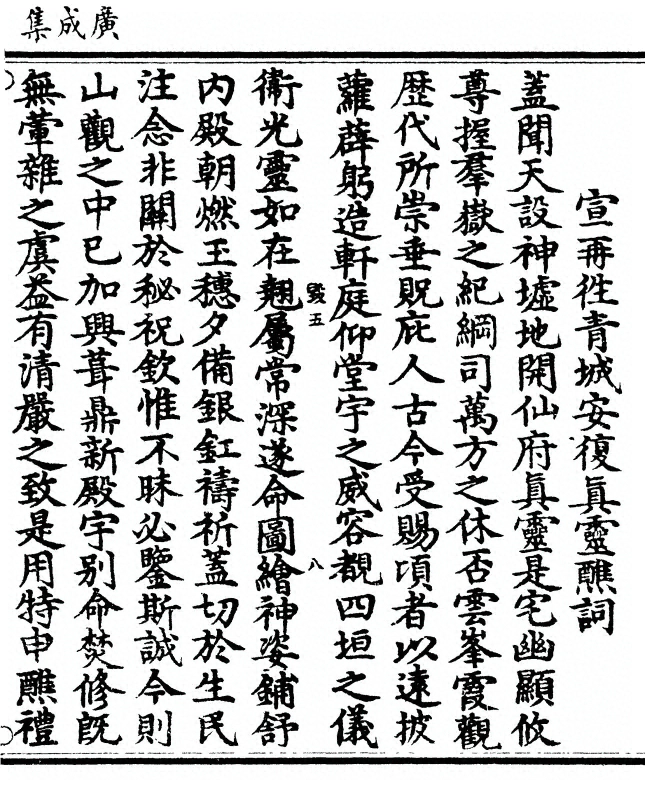 廣成集
宣再徃青城安復眞靈醮詞
蓋聞天設神墟地開仙府眞靈是宅幽顯攸
尊握羣嶽之紀綱司萬方之休否雲峯霞觀
歷代所崇垂貺庇人古今受賜頃者以遠披
蘿薜躬造軒庭仰堂宇之威容覩四垣之儀
衞光靈如在翹屬常深遂命圖繪神姿鋪舒
内殿朝燃玉穗夕備銀釭禱祈蓋切於生民
注念非關於秘祝欽惟不昧必鑒斯誠今則
山觀之中已加興葺鼎新殿宇别命焚修旣
無葷雜之虞益有清嚴之致是用特申醮禮
五
八